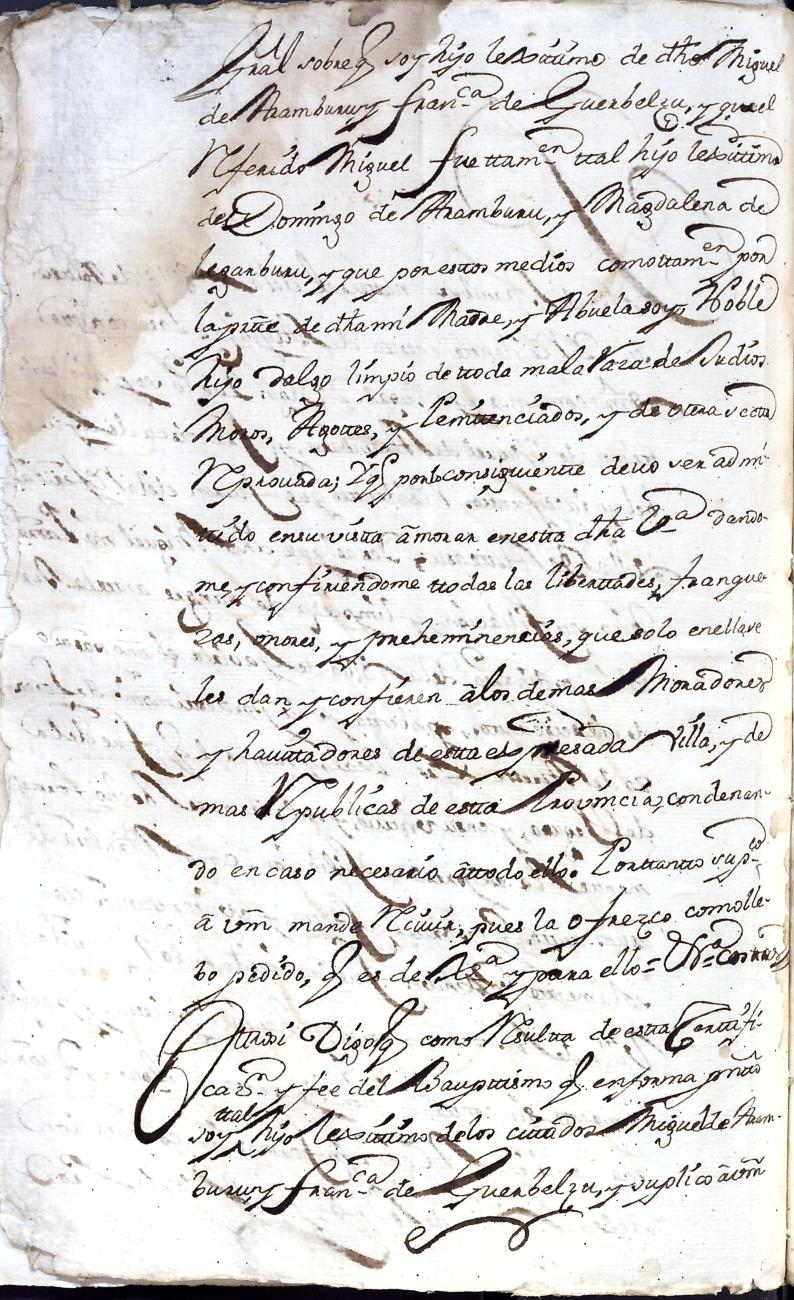 Gral sobre q soy hijo lexitimo de dho Miguel
de Aramburu y Franca de Guerbelzu, y que el
Referido Miguel fue ttamen ttal hijo lexittimo
de Domingo de Aramburu, y Magdalena de
legarburu, y que por esttos medios como ttamen por
la prtte de dha mi Madre, y Abuela soy Noble
hijo dalgo limpio de ttoda mala Raza de Judios
Moros, Agottes, y Penittenciados, y de otra sectta
Reprovada; Y q por lo consiguientte devo ser admi-
ttido en su vistta a morar en estta dha Va dando-
me y confiriendome ttodas las liberttades, franque-
zas, onores, y preheminencias, que solo en ella se
les dan y confieren a los demas Moradores
y havittadores de estta expresada Villa, y de
mas Republicas de estta Provincia, condenan-
do en caso necesario a ttodo ello. Porttantto supco
a vm mande Recivir, pues la ofrezco como lle-
bo pedido, q es de Jusa y para ello =
Ottrosi Digo q como Resultta de estta Certtifi-
cazn y fee del Bauptismo q en forma prtto
soy ttal hijo lexittimo de los cittados Miguel de Aram-
buru, y Franca de Guerbelzu, y suplico a vm